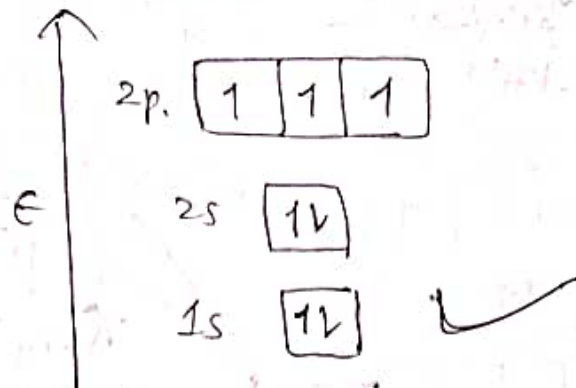 2p. 1 1 1
E
2s 1L
1s 1L